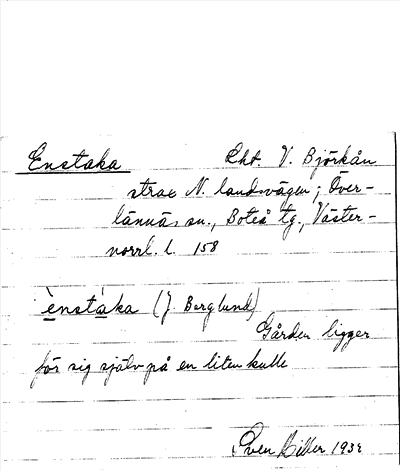 Enstaka Lht. V. Björkån
strax N. landsvägen; Över-
lännäs sn., Boteå tg., Väster-
norrl. l. 158
ènstáka (J. Berglund)
Gården ligger
för sig själv på en liten kulle
Sven